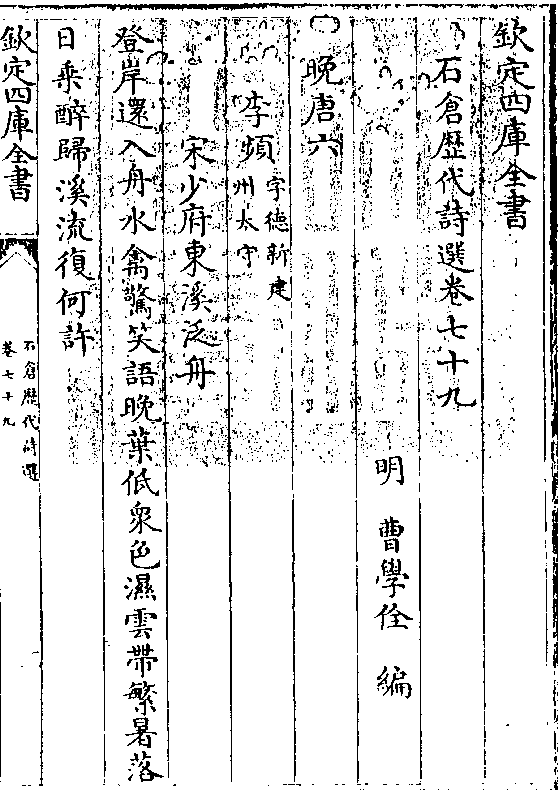 欽定四庫全書
石倉歴代詩選卷七十九
明 曹學佺 編
晚唐六
李頻字德新建
州太守
宋少府東溪泛舟
登岸還入舟水禽驚笑語晚葉低衆色濕雲帶繁暑落
日乗醉歸溪流復何許
欽定四庫全書
石倉歴代詩選
卷七十九